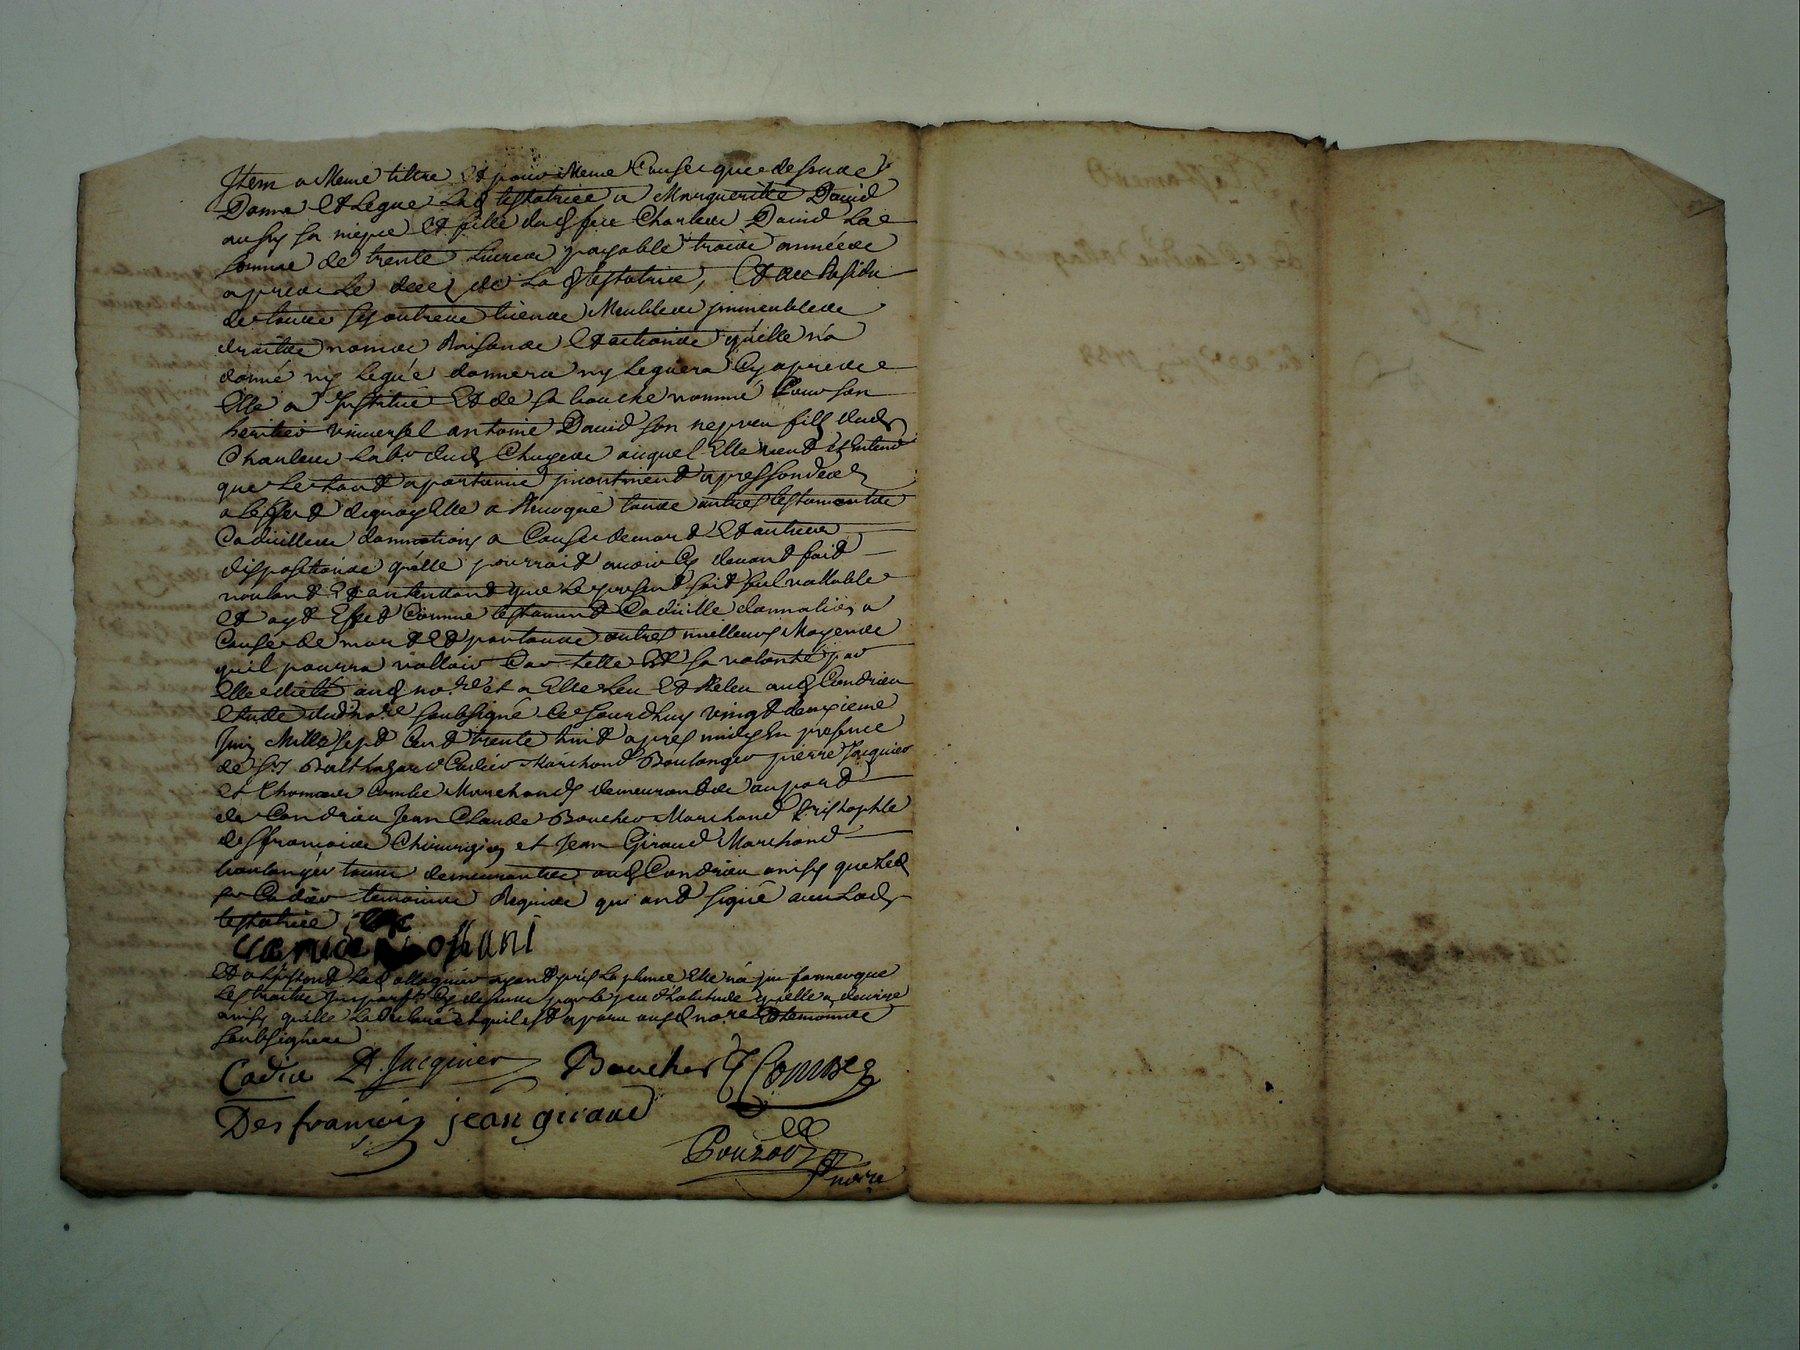 Item a Meme tiltre Et pour Meme Cause que dessus
Donne Et Legue Lad testatrice a Margueritte David
aussy sa niepce Et fille dud feu Charles David La
somme de trente Livres payable trois années
apres Le deces de La d testatrice, Et au Residu
de tous ses autres biens Meubles immeubles
droits noms Raisons Et actions qu'elle n'a
donné ny legué donnera ny leguera Cy apres
Elle a Institué Et de sa bouche nommé Pour son
heritier universel antoine David son nepveu fils dud
Charles auquel Elle veut Et Entend
que Le tout apartienne incontinent apres son deces
a L'effet dequoy Elle a Revoqué tous autres testaments
Codicilles donnations a Cause de mort Et autres
dispositions qu'elle pourroit avoir Cy devant fait
voulant Et entendant que Le present soit seul vallable
Et ayt Effet Comme testament Codicille donnation a
Cause de mort Et par tous autres meilleurs Moyens
qu'il pourra valloir Car telle Est sa volonté par
Elle dicté aud no.re et a Elle Leu Et Releu aud Condrieu
Etude dud no.re soubsigné Ce Jourdhuy vingt deuxieme
Juin Mille sept Cent trente huit apres midy En presence
de Sr Balthazard Cadier Marchand Boulanger pierre Jacquier
et thomas Combe Marchands demeurants au port
de Condrieu Jean Claude Boucher Marchand Cristophle
desfrancois Chirurgien et Jean Giraud Marchand
boulanger tous demeurants aud Condrieu ainsy que Led
sr Cadier temoins Requis qui ont signé avec Lad
testatrice
Et a L'instant Lad allagnier ayant pris La plume Elle n'a pu former que
Les traits imparfts Cy dessus par Le peu d'habitude qu'elle a d'ecrire
ainsy qu'elle L'a declaré et qu'il est aparu aud no.re Et temoins
soubsignés
Cadier P. Jacquier Boucher T Combe
Desfrancois jean giraud
Pouzols
nore